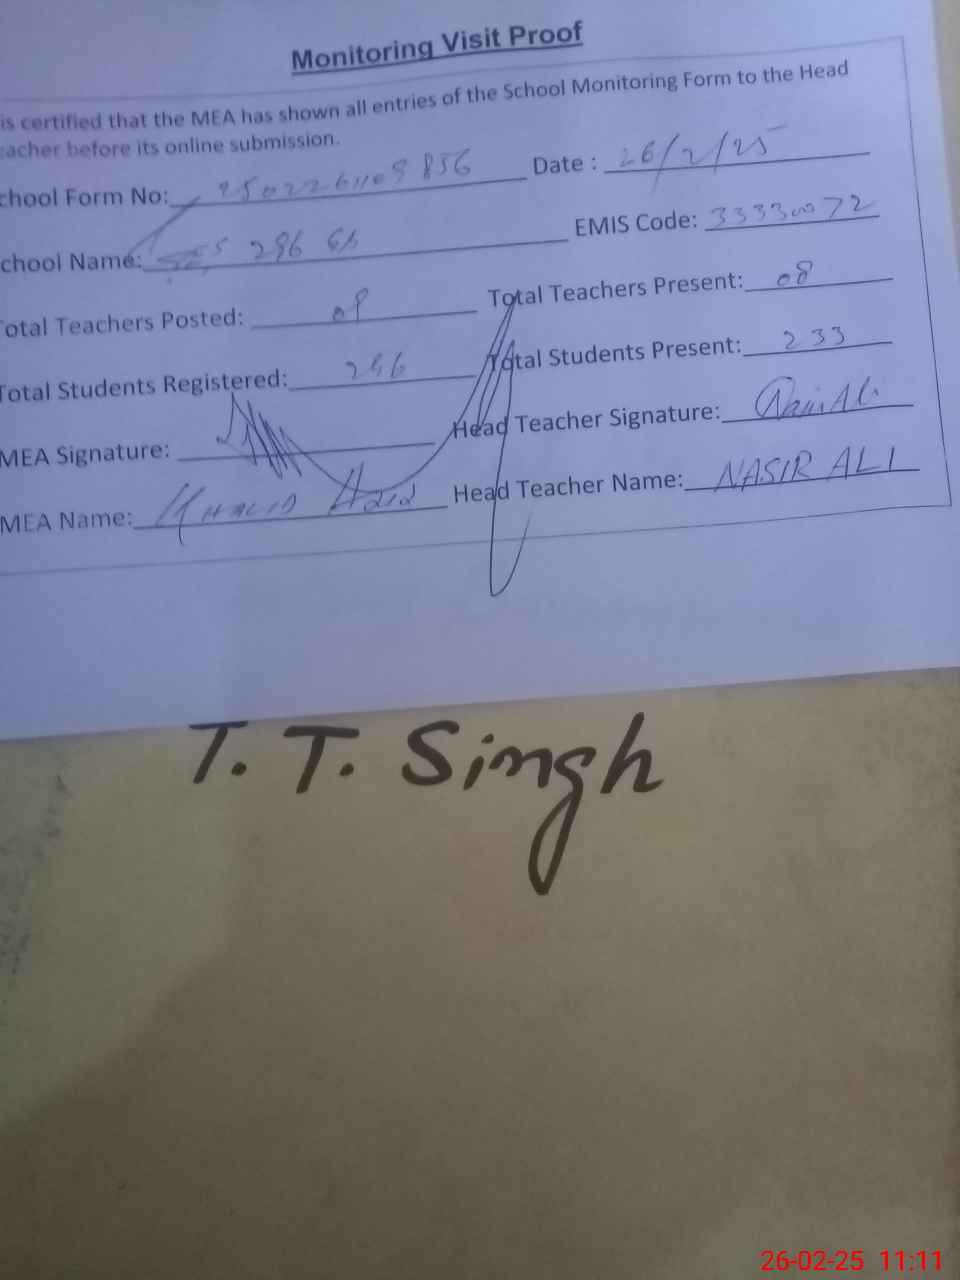 Monitoring Visit Proof
is certified that the MEA has shown all entries of the School Monitoring Form to the Head
eacher before its online submission.
chool Form No: Date : 26/2/25
chool Name: 296 GB EMIS Code: 33330072
Total Teachers Posted: 08 Total Teachers Present: 08
Total Students Registered: Total Students Present: 233
MEA Signature: Head Teacher Signature: Nasir Ali
MEA Name: KHALID Head Teacher Name: NASIR ALI
T. T. Singh
26-02-25 11:11